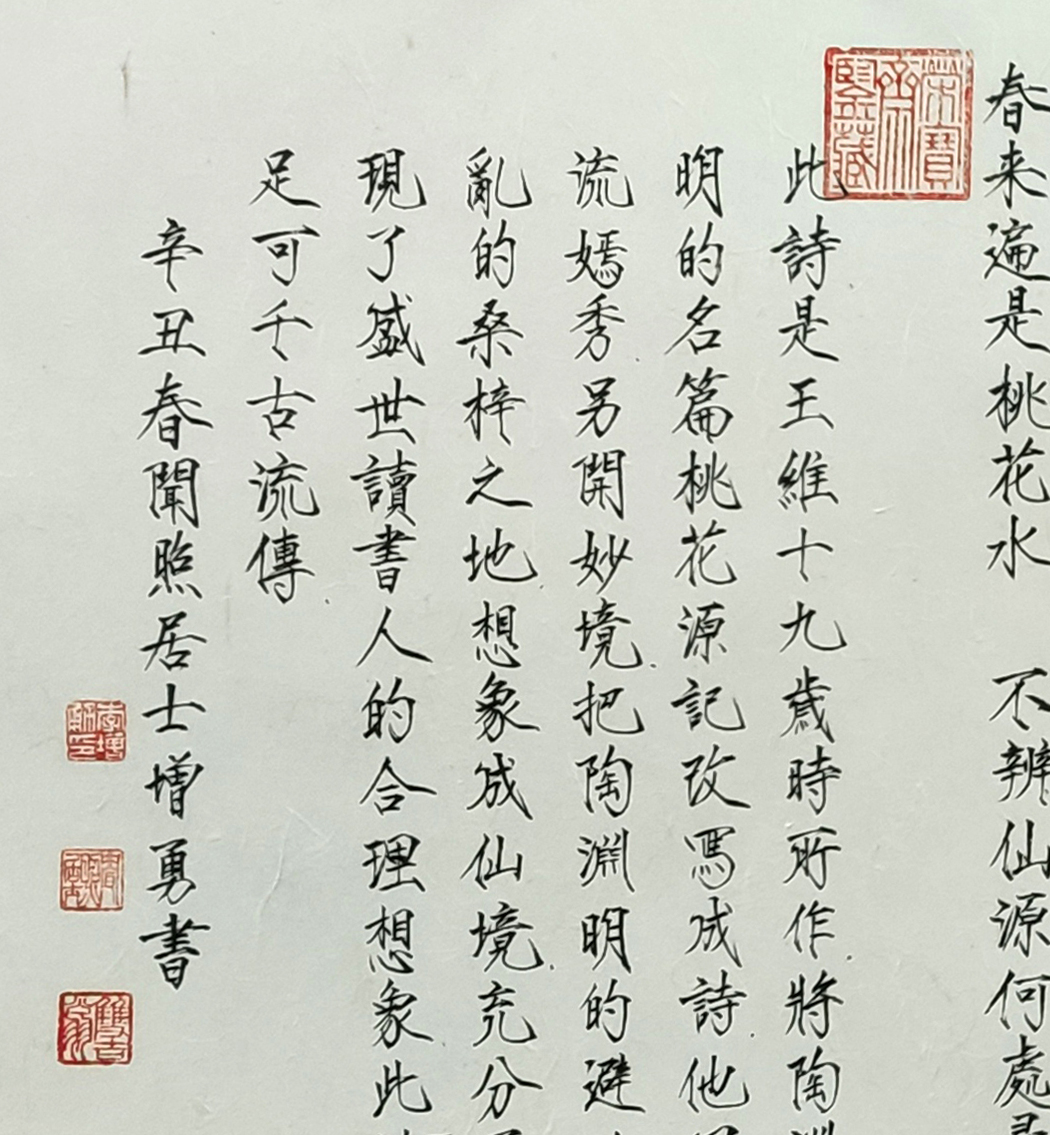 春来遍是桃花水　不辨仙源何處
榮寶齋
此詩是王維十九歲時所作將陶
明的名篇桃花源記改寫成詩他
流嫣秀另開妙境把陶淵明的避
亂的桑梓之地想象成仙境充分
現了盛世讀書人的合理想象此
足可千古流傳
辛丑春聞照居士增勇書